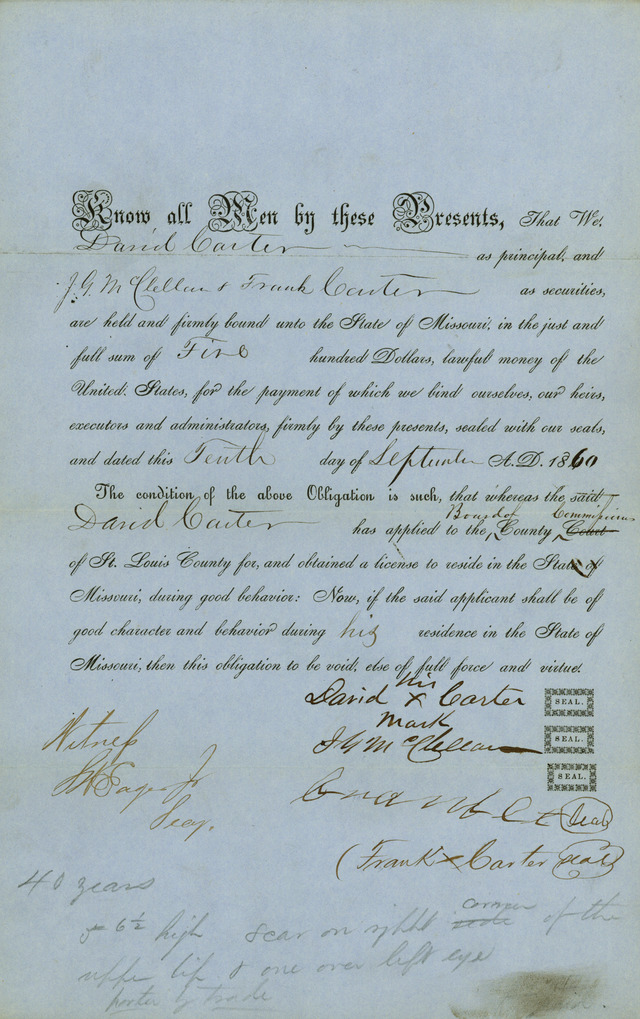 Know all Men by these Presents, That We.
David Carter as principal, and
J. G. McClellan & Frank Carter as securities,
are held and firmly bound unto the State of Missouri, in the just and
full sum of Five hundred Dollars, lawful money of the
United States, for the payment of which we bind ourselves, our heirs,
executors and administrators, firmly by these presents, sealed with our seals,
and dated this Tenth day of September A. D. 1860
The condition of the above Obligation is such, that whereas the said
Board of Commissioners
David Carter has applied to the County Court
of St. Louis County for, and obtained a license to reside in the State of
Missouri, during good behavior: Now, if the said applicant shall be of
good character and behavior during his residence in the State of
Missouri, then this obligation to be void, else of full force and virtue.
his
David x Carter SEAL.
mark
J G McClellan SEAL.
Witness
SEAL.
Jr
Secy.
Seal
(Frank x Carter Seal
40 years
corner
5 6½ high scar on right side of the
upper lip & one over left eye
porter by trade